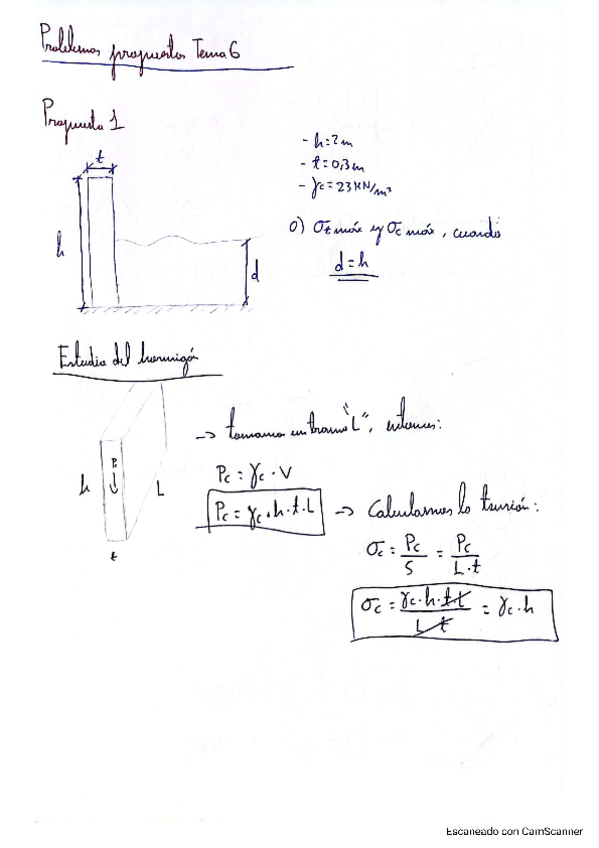 Problemas propuestos Tema 6
Propuesto 1
t
h
d
- h = 2 m
- t = 0,3 m
- γc = 23 KN/m³
a) σt máx y σc máx, cuando
d = h
Estudio del hormigón
h
P
L
t
→ tomamos un tramo "L", entonces:
Pc = γc · V
Pc = γc · h · t · L
→ Calculamos la tensión:
σc = Pc/S = Pc/L·t
σc = γc·h·t·L/L·t = γc·h
Escaneado con CamScanner